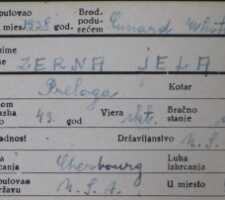 putovao
mjes. 1938 god. Brod. podu-
zećem Cunard White
zime
me ZERNA JELA
Preloga Kotar
om
aska 43. god Vjera rkt. Bračno
to stanje
adnost Državljanstvo
ka Cherbourg Luka
rcanja iskrcanja
putovao U. S. A. U mjesto
ržavu